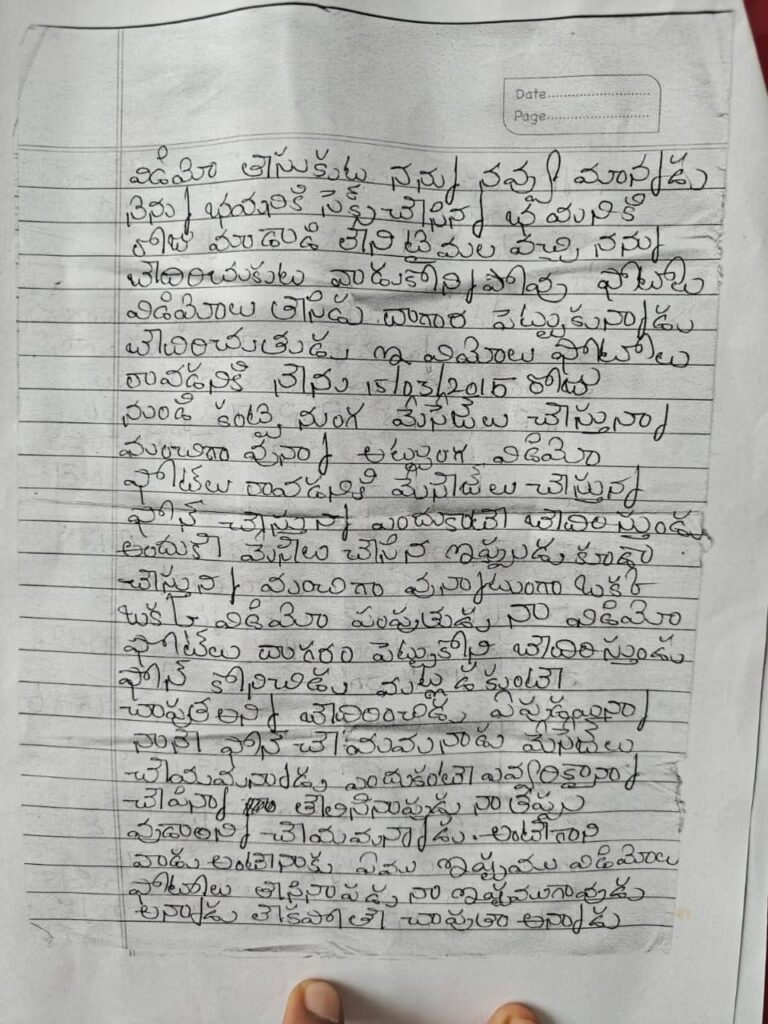 Date
Page
విడిమో తాసుకుట నన్ను నవ్వు మాన్నాడు
నెను భయనికి సెక్స్ చేసిన భయనికి
రోజు మాడండి లేని టైమల వచ్చి నన్ను
బేదిరించుకుట వాడుకోని పోవు ఫోటోలు
విడిమోలు తాసిడు దాగార పెట్టుకున్నాడు
బేదిరించుతుడు ఇ విమోలు ఫోటోలు
రావడనికి నేను 15/03/2015 రోజు
నుండి కంట్టి నుంగ మేసేజేలు చేస్తున్నా
మంచిగా వున్నా అట్లుంగ విడిమో
ఫోటోలు రావడనికి మేసేజేలు చేస్తున్న
ఫోన్ చేస్తున్న ఎందుకంటే బేదిరిస్తుండు
అందుకే మేసేలు చేసిన ఇప్పుడు కూడా
చేస్తున్న మంచిగా వున్నాటుంగా ఒకక
ఒకక విడిమో పంపుతుడు నా విడిమో
ఫోటోలు దాగరం పెట్టుకోని బేదిరిస్తుండు
ఫోన్ కోనిచిడు ముట్లడకుంటే
చాపుత అని బేదిరించిడు ఏపుడ్తుయినా
నానే ఫోన్ చేయమనాడు మేసేజేలు
చేయమన్నాడు ఎందుకంటే ఎవ్వరికైనా
చేపినా తేలిసినాపుడు నా తప్పున
వుడాలని చేయమన్నాడు. అంటేగాని
వాడు అంటేనాకు ఏము ఇష్టము విడిమోలు
ఫోటోలు తాసినాపడు నా ఇష్టముగావుడు
అన్నాడు లేకపోతే చాపుతా అన్నాడు